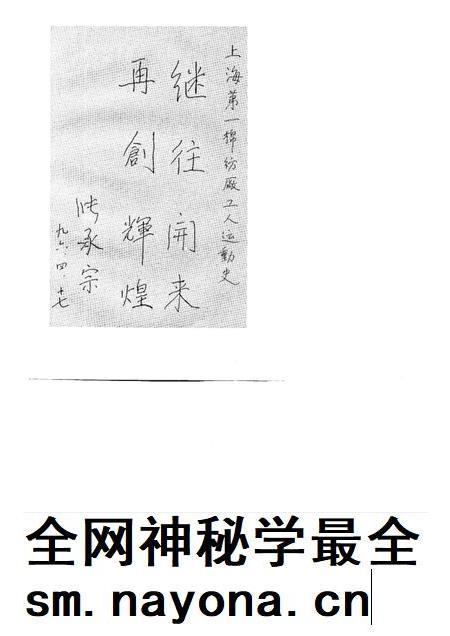 上海第一棉纺厰工人运動史
继往开来
再創輝煌
张承宗
九六.四.十七
全网神秘学最全
sm.nayona.cn